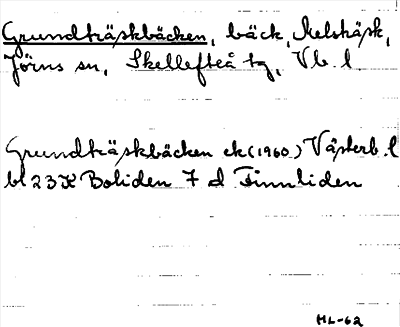 Grundträskbäcken, bäck, Melsträsk,
Jörns sn, Skellefteå tg, Vb. l.
Grundträskbäcken ek (1960) Västerb. l
bl 23 K Boliden 7 d Finnliden
HL-62